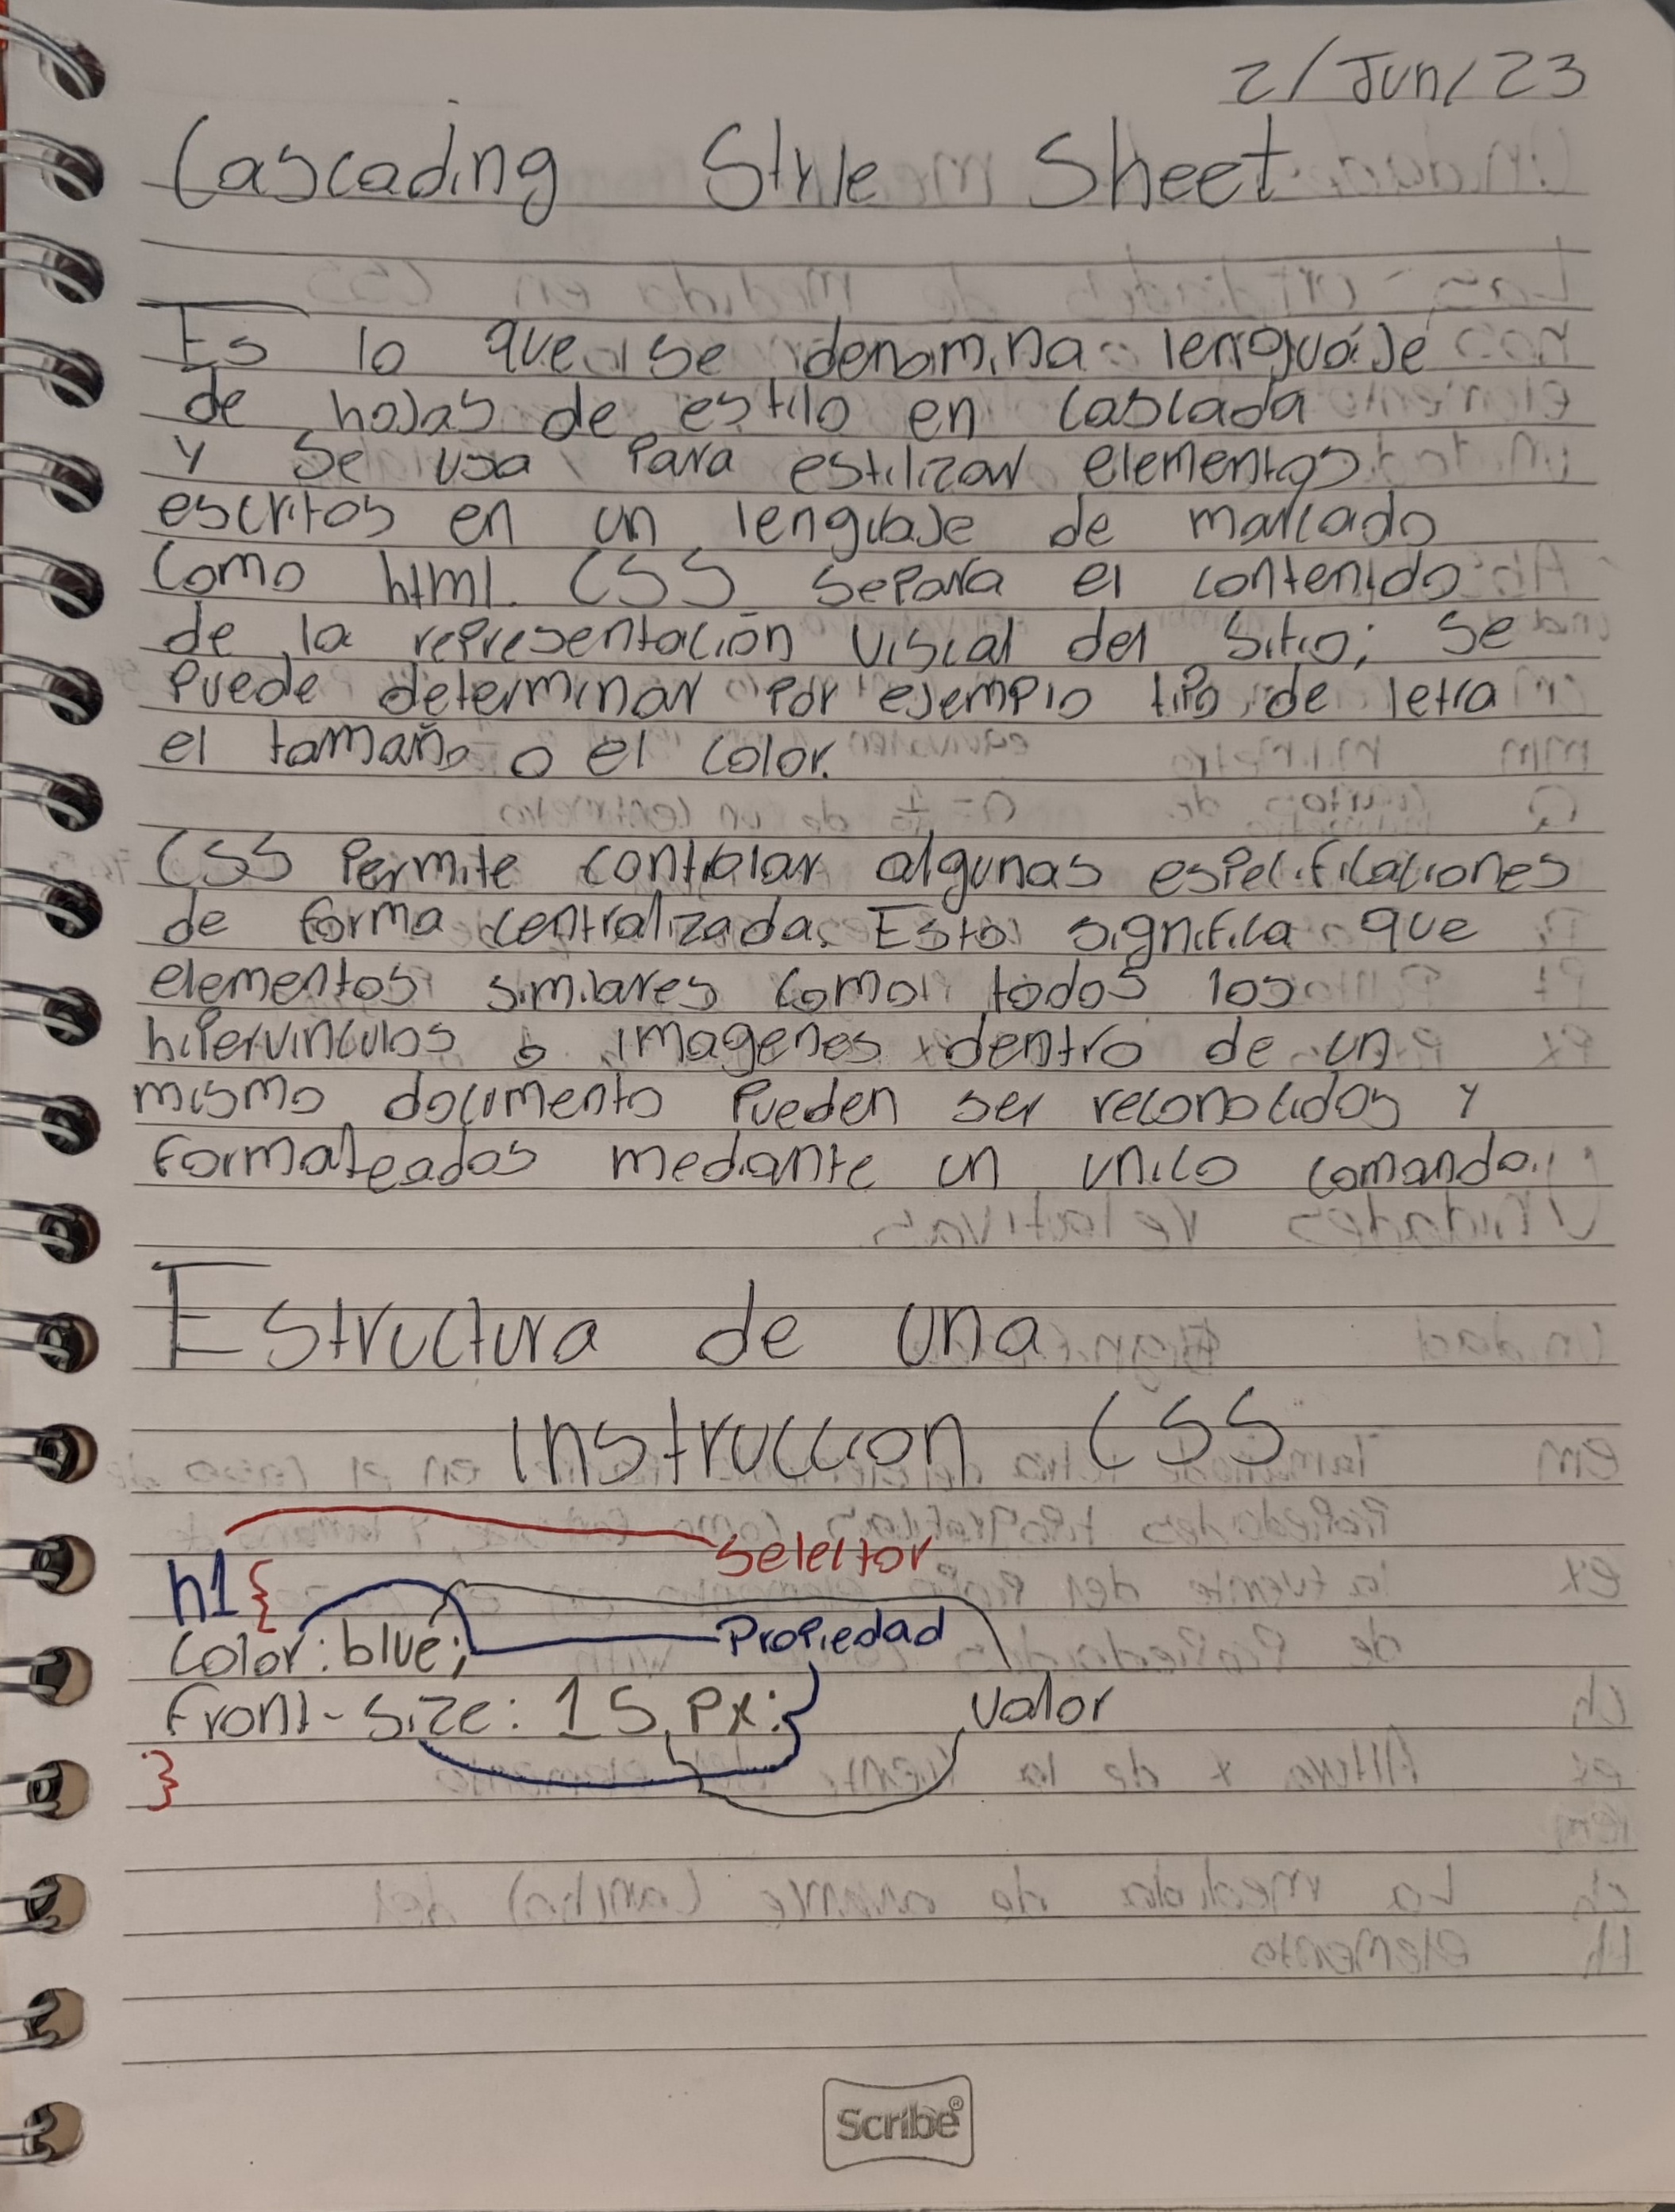 2/Jun/23
Cascading Style Sheet
Es lo que se denomina lenguaje
de hojas de estilo en cascada
y se usa para estilizar elementos
escritos en un lenguaje de marcado
como html. CSS separa el contenido
de la representación visual del sitio; se
puede determinar por ejemplo tipo de letra
el tamaño o el color.
CSS permite controlar algunas especificaciones
de forma centralizada. Esto significa que
elementos similares como todos los
hipervinculos o imagenes dentro de un
mismo documento pueden ser reconocidos y
formateados mediante un unico comando.
Estructura de una
instruccion CSS
selector
h1{
color: blue; Propiedad
front-size: 15 px; valor
}
Scribe®